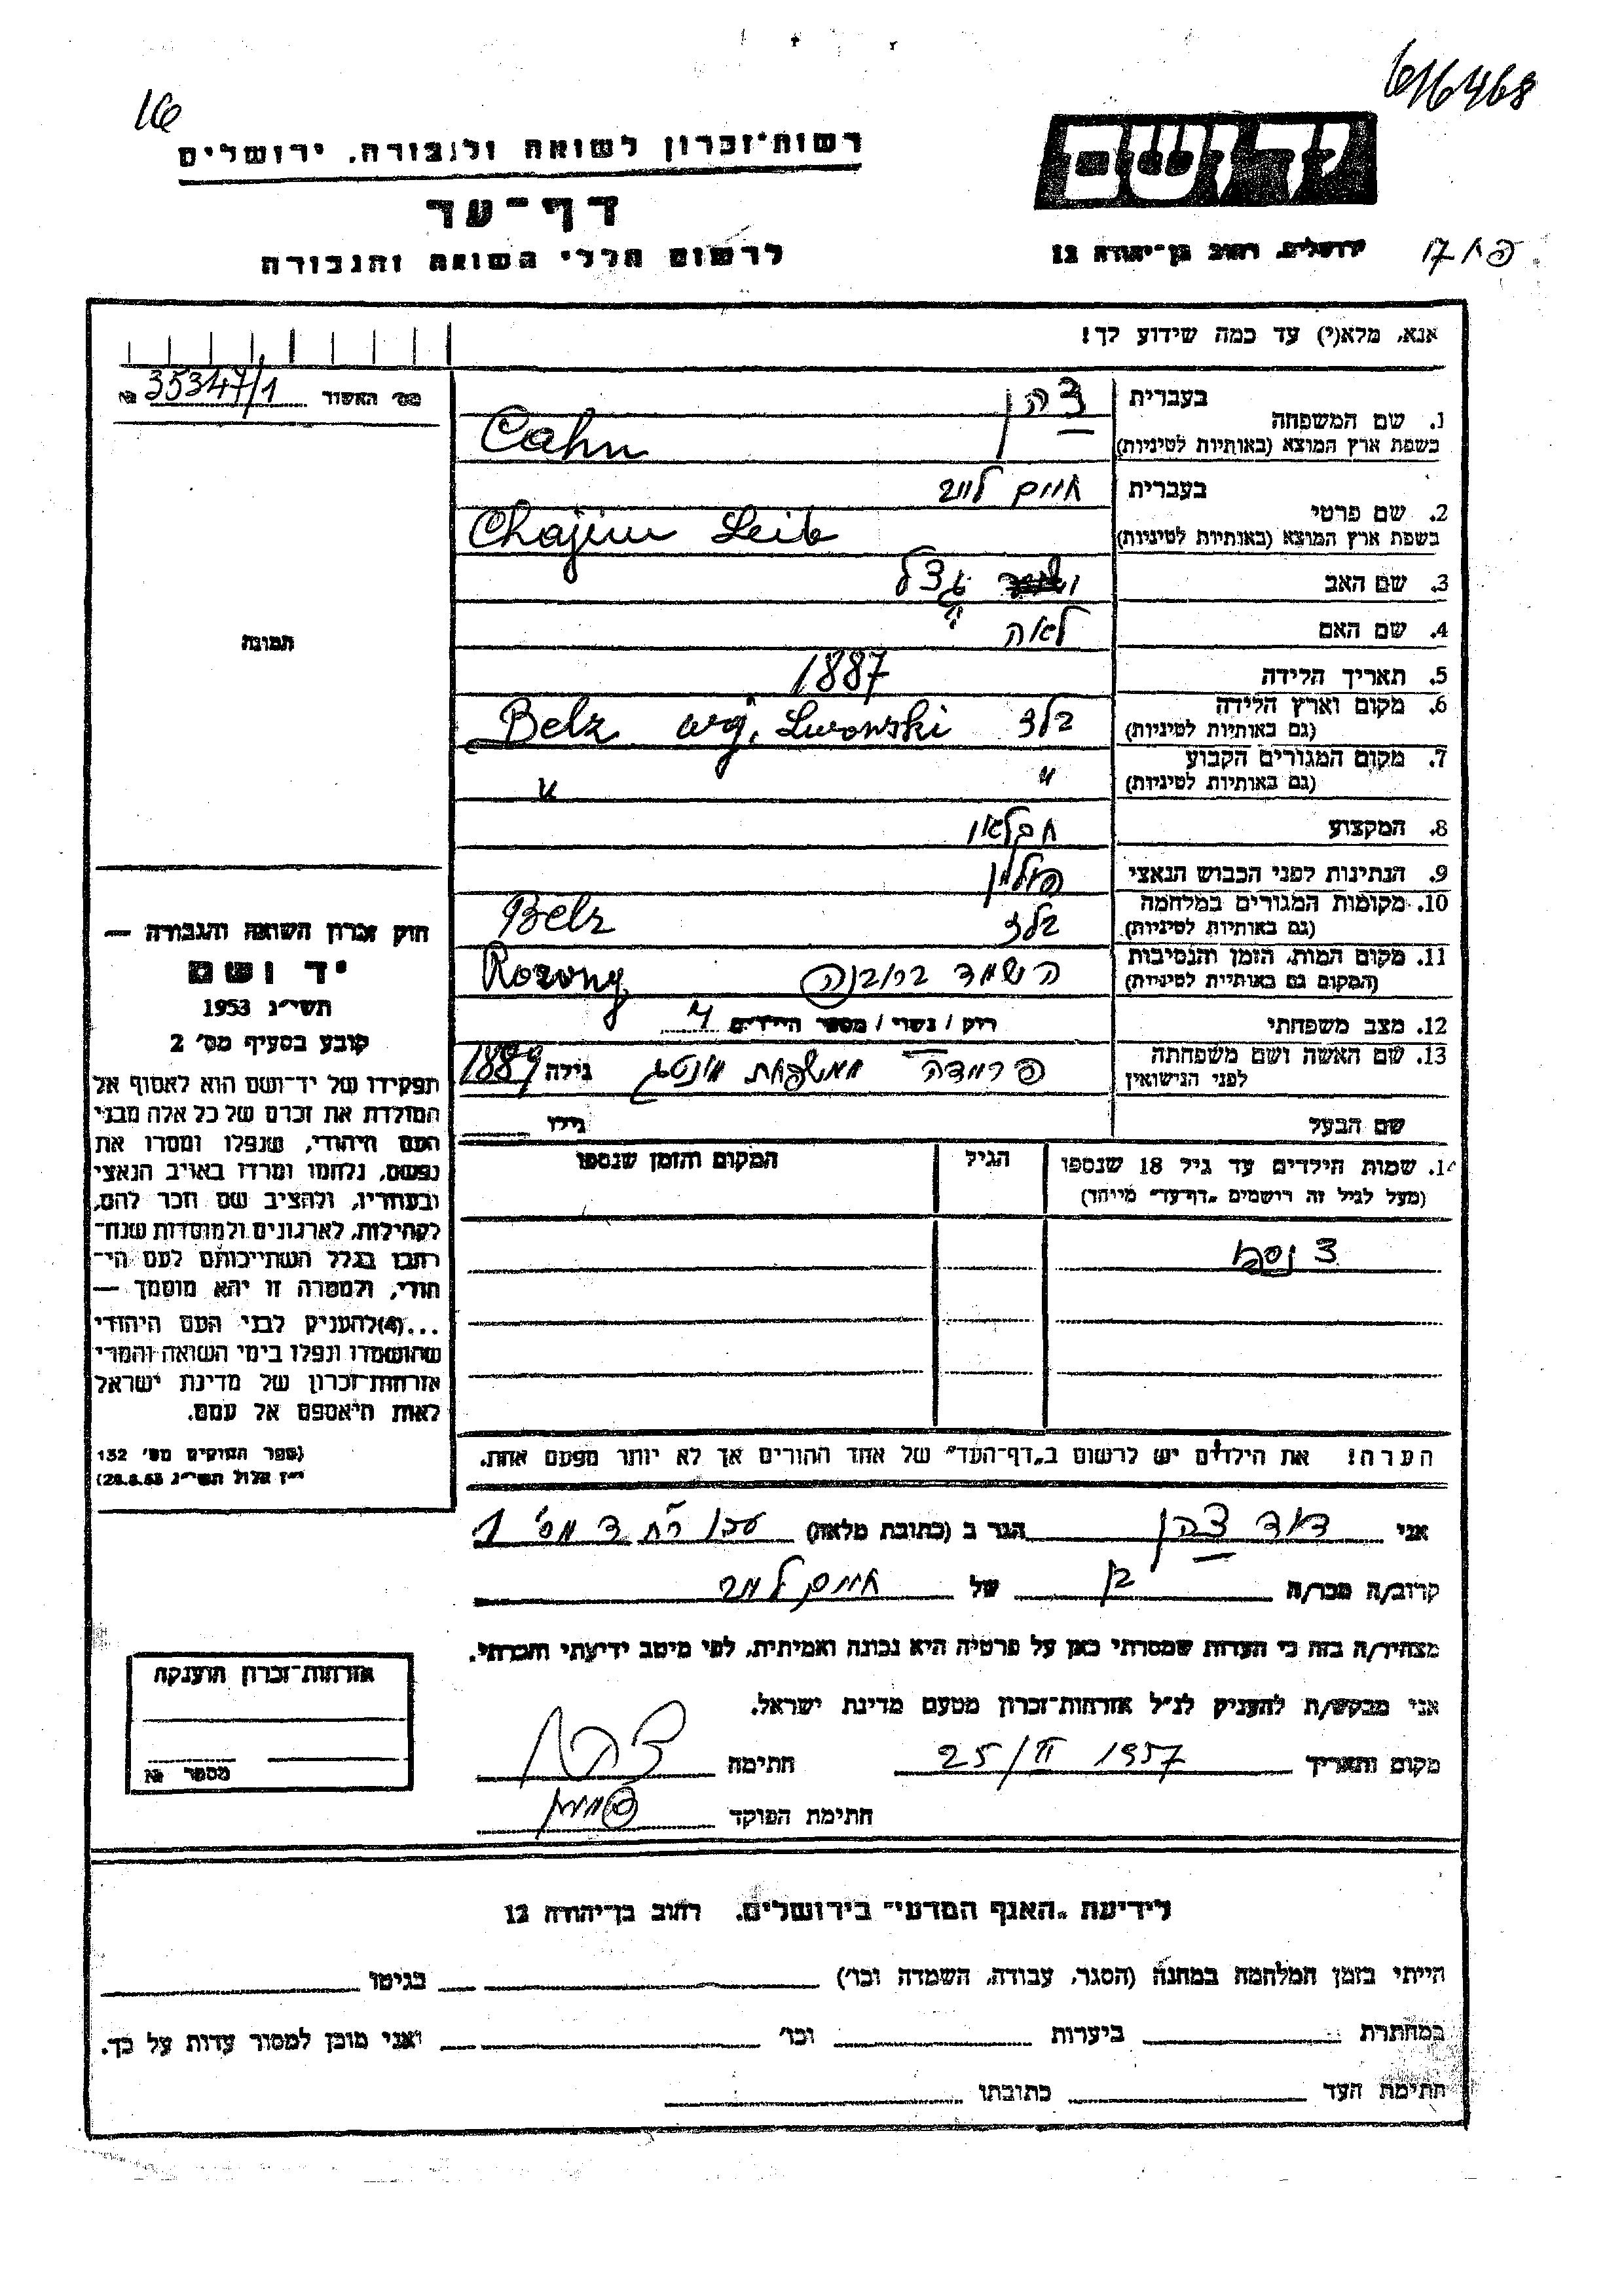 616468
16
רשות-זכרון לשואה ולגבורה, ירושלים
יד ושם
דף-עד
ירושלים, רחוב בן-יהודה 12
לרשום חללי השואה והגבורה
אנא, מלא(י) עד כמה שידוע לך!
מס׳ האשור 35347/1 №
בעברית צהן
1. שם המשפחה
בשפת ארץ המוצא (באותיות לטיניות) Cahn
בעברית חיים לייב
2. שם פרטי
בשפת ארץ המוצא (באותיות לטיניות) Chajim Leib
3. שם האב געצל
4. שם האם לאה
תמונה
5. תאריך הלידה 1887
6. מקום וארץ הלידה
(גם באותיות לטיניות) בלז Belz woj. Lwowski
7. מקום המגורים הקבוע
(גם באותיות לטיניות) " "
8. המקצוע חקלאי
9. הנתינות לפני הכבוש הנאצי פולין
10. מקומות המגורים במלחמה
(גם באותיות לטיניות) בלז Belz
11. מקום המות, הזמן והנסיבות
(המקום גם באותיית לטיניות) השמד
12. מצב משפחתי רוק / נשוי / מספר הילדים 4
13. שם האשה ושם משפחתה
לפני הנישואין פרידה ממשפחת גילה 1889
שם הבעל גילו
14. שמות הילדים עד גיל 18 שנספו הגיל המקום והזמן שנספו
(מעל לגיל זה רושמים „דף-עד״ מיוחד)
3 נספו
הערה! את הילדים יש לרשום ב„דף-העד״ של אחד ההורים אך לא יותר מפעם אחת.
חוק זכרון השואה והגבורה —
יד ושם
תשי״ג 1953
קובע בסעיף מס׳ 2
תפקידו של יד-ושם הוא לאסוף אל
המולדת את זכרם של כל אלה מבני
העם היהודי, שנפלו ומסרו את
נפשם, נלחמו ומרדו באויב הנאצי
ובעוזריו, ולהציב שם וזכר להם,
לקהילות, לארגונים ולמוסדות שנח-
רבו בגלל השתייכותם לעם הי-
הודי, ולמטרה זו יהא מוסמך —
...(4)להעניק לבני העם היהודי
שהושמדו ונפלו בימי השואה והמרי
אזרחות-זכרון של מדינת ישראל
לאות היאספם אל עמם.
(ספר החוקים מס׳ 132
י״ז אלול תשי״ג 28.8.53)
אני דוד צהן הגר ב (כתובת מלאה) עכו מס׳ 1
קרוב/ה מכר/ה בן של חיים לייב
מצהיר/ה בזה כי העדות שמסרתי כאן על פרטיה היא נכונה ואמיתית, לפי מיטב ידיעתי והכרתי.
אני מבקש/ת להעניק לנ״ל אזרחות-זכרון מטעם מדינת ישראל.
מקום ותאריך 25/II 1957 חתימה צהן
חתימת הפוקד
אזרחות-זכרון הוענקה
מספר №
לידיעת „האגף המדעי״ בירושלים, רחוב בן-יהודה 12
הייתי בזמן המלחמה במחנה (הסגר, עבודה, השמדה וכו׳) בגיטו
במחתרת ביערות וכו׳ ואני מוכן למסור עדות על כך.
חתימת העד כתובתו